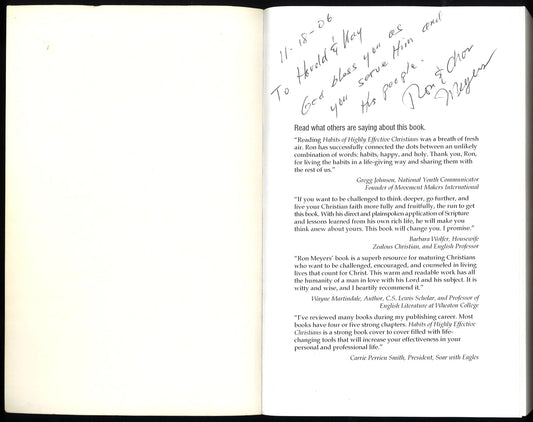 11-18-06
To Harold & Kay
God bless you as
you serve Him and
His people.
Ron & Char
Meyers
Read what others are saying about this book.
"Reading Habits of Highly Effective Christians was a breath of fresh
air. Ron has successfully connected the dots between an unlikely
combination of words: habits, happy, and holy. Thank you, Ron,
for living the habits in a life-giving way and sharing them with
the rest of us."
Gregg Johnson, National Youth Communicator
Founder of Movement Makers International
"If you want to be challenged to think deeper, go further, and
live your Christian faith more fully and fruitfully, the run to get
this book. With his direct and plainspoken application of Scripture
and lessons learned from his own rich life, he will make you
think anew about yours. This book will change you. I promise."
Barbara Wolfer, Housewife
Zealous Christian, and English Professor
"Ron Meyers' book is a superb resource for maturing Christians
who want to be challenged, encouraged, and counseled in living
lives that count for Christ. This warm and readable work has all
the humanity of a man in love with his Lord and his subject. It is
witty and wise, and I heartily recommend it."
Wayne Martindale, Author, C.S. Lewis Scholar, and Professor of
English Literature at Wheaton College
"I've reviewed many books during my publishing career. Most
books have four or five strong chapters. Habits of Highly Effective
Christians is a strong book cover to cover filled with life-
changing tools that will increase your effectiveness in your
personal and professional life."
Carrie Perrien Smith, President, Soar with Eagles